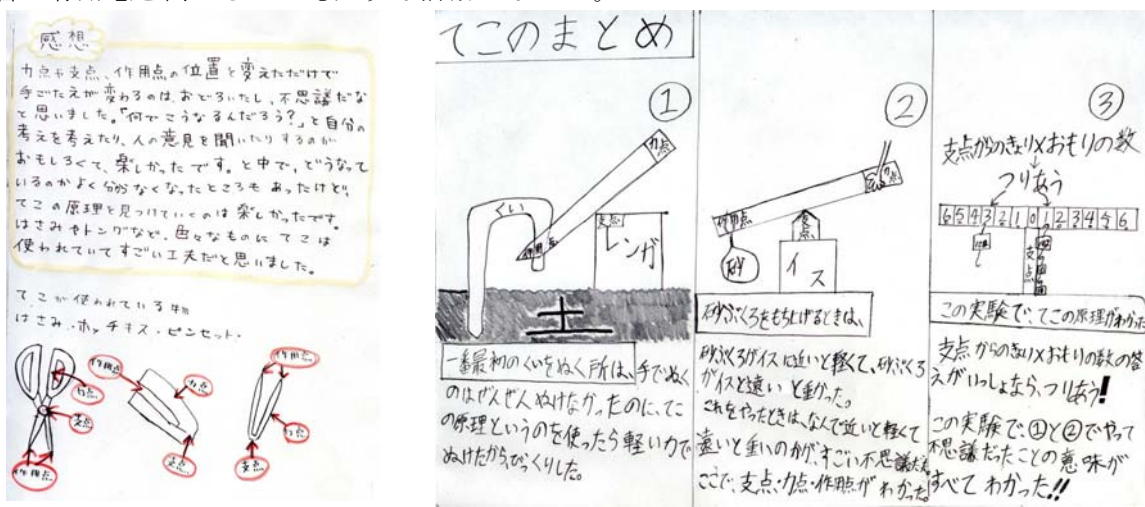 感想
力点や支点、作用点の位置を変えただけで
手ごたえが変わるのは、おどろいたし、不思議だな
と思いました。「何でこうなるんだろう?」と自分の
考えを考えたり、人の意見を聞いたりするのが
おもしろくて、楽しかったです。と中で、どうなって
いるのかよく分からなくなったところもあったけど、
てこの原理を見つけていくのは楽しかったです。
はさみやトングなど、色々なものにてこは
使われていてすごい工夫だと思いました。
てこが使われている物
はさみ・ホッチキス・ピンセット・
力点
支点
作用点
作用点
力点
支点
作用点
力点
支点
てこのまとめ
①
力点
くい
作用点
支点
レンガ
土
一番最初のくいをぬく所は、手でぬく
のはぜんぜんぬけなかったのに、てこ
の原理というのを使ったら軽い力で
ぬけたからびっくりした。
②
力点
作用点
支点
砂
イス
砂ぶくろをもち上げるときは、
砂ぶくろがイスに近いと軽くて、砂ぶくろ
がイスと遠いと重かった。
これをやったときは、なんで近いと軽くて
遠いと重いのかが、すごい不思議だった。
ここで、支点・力点・作用点がわかった。
③
支点からのきょり×おもりの数
つりあう
6 5 4 3 2 1 0 1 2 3 4 5 6
支点
この実験で、てこの原理がわかった
支点からのきょり×おもりの数の答
えがいっしょなら、つりあう!
この実験で、①と②でやって
不思議だったことの意味が
すべてわかった!!